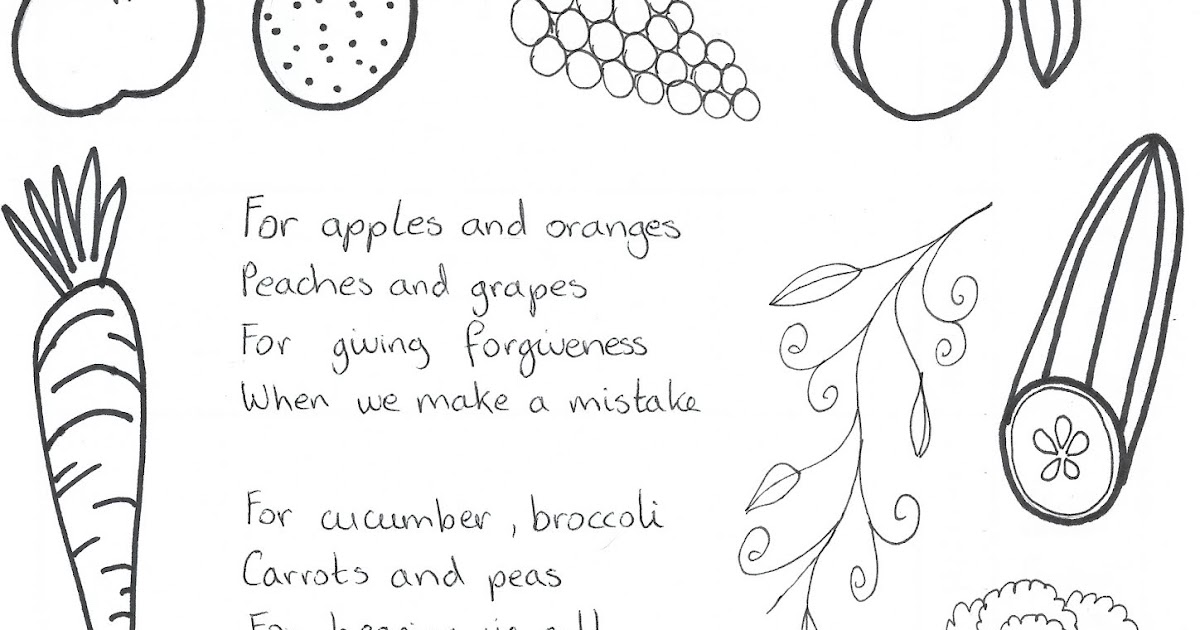 For apples and oranges
Peaches and grapes
For giving forgiveness
When we make a mistake
For cucumber, broccoli
Carrots and peas
For